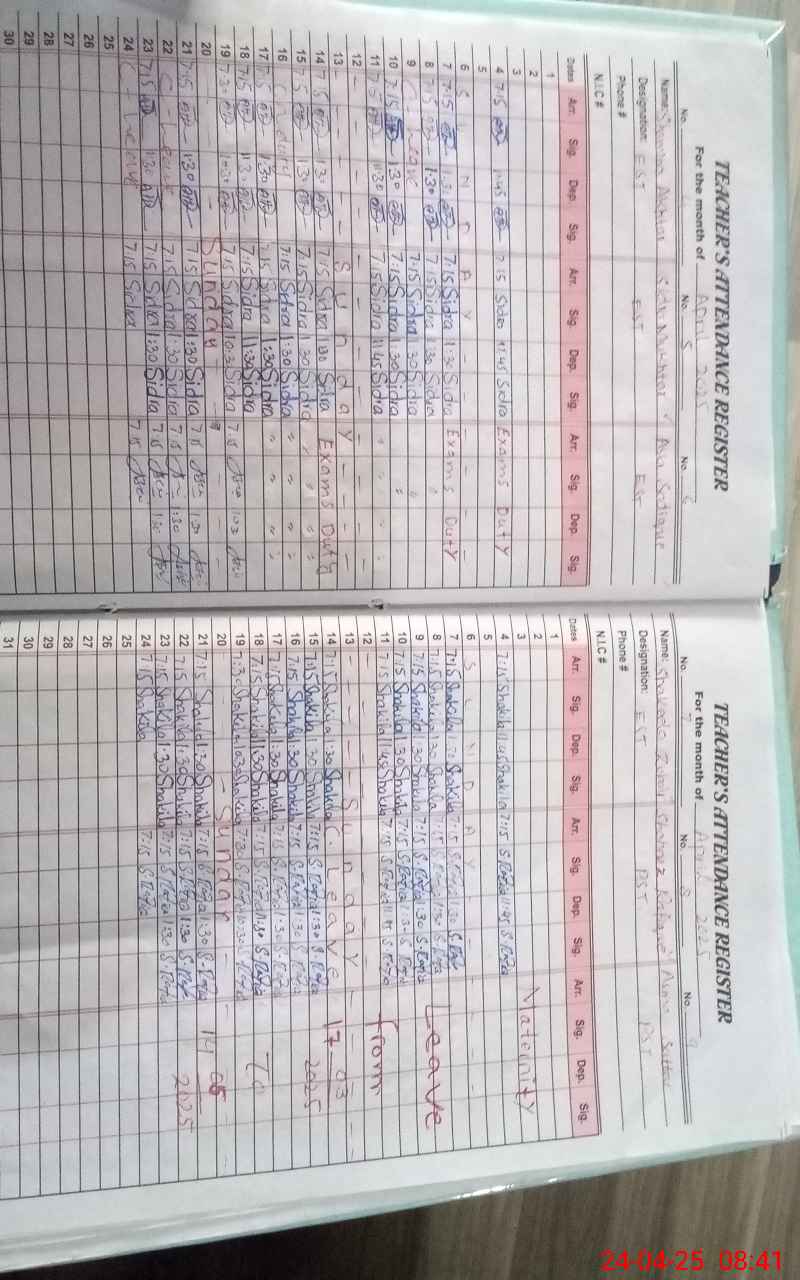 TEACHER'S ATTENDANCE REGISTER
For the month of April 2025
No. No. 5 No. 6
Name: Akhtar Sidra
Designation: EST EST EST
Phone #
N.I.C #
Dates Arr. Sig. Dep. Sig. Arr. Sig. Dep. Sig. Arr. Sig. Dep. Sig.
1
2
3
4 7:15 1:45 7:15 Sidra 11:45 Sidra Exams Duty
5
6 S U N D A Y
7 7:15 1:30 7:15 Sidra 1:30 Sidra Exams Duty
8 7:15 1:30 7:15 Sidra 1:30 Sidra "
9 C- Leave 7:15 Sidra 1:30 Sidra "
10 7:15 1:30 7:15 Sidra 1:30 Sidra "
11 7:15 1:30 7:15 Sidra 11:45 Sidra " " "
12
13 - - - - S u n d a y - - - -
14 7:15 1:30 7:15 Sidra 1:30 Sidra Exams Duty
15 7:15 1:30 7:15 Sidra 1:30 Sidra " " " "
16 7:15 Sidra 1:30 Sidra " " " "
17 7:15 1:30 7:15 Sidra 1:30 Sidra " " " "
18 7:15 1:30 7:15 Sidra 11:30 Sidra " " " "
19 7:30 10:30 7:15 Sidra 10:30 Sidra 7:15 10:3
20 Sunday
21 7:15 1:30 7:15 Sidra 1:30 Sidra 7:15 1:30
22 C- Leave 7:15 Sidra 1:30 Sidra 7:15 1:30
23 7:15 1:30 7:15 Sidra 1:30 Sidra 7:15 1:30
24 C- Leave 7:15 Sidra 7:15
25
26
27
28
29
30
TEACHER'S ATTENDANCE REGISTER
For the month of April 2025
No. 7 No. 8 No. 9
Name: Shakeela
Designation: EST PST PST
Phone #
N.I.C #
Dates Arr. Sig. Dep. Sig. Arr. Sig. Dep. Sig. Arr. Sig. Dep. Sig.
1
2
3 Maternity
4 7:15 Shakila 11:45 Shakila 7:15 S. Rafia 11:45 S. Rafia
5
6 S U N D A Y
7 7:15 Shakila 1:30 Shakila 7:15 S. Rafia 1:30 S. Rafia
8 7:15 Shakila 1:30 Shakila 7:15 S. Rafia 1:30 S. Rafia Leave
9 7:15 Shakila 1:30 Shakila 7:15 S. Rafia 1:30 S. Rafia
10 7:15 Shakila 1:30 Shakila 7:15 S. Rafia 1:30 S. Rafia
11 7:15 Shakila 11:45 Shakila 7:15 S. Rafia 11:45 S. Rafia from
12
13 - - - - S u n d a y - - - -
14 7:15 Shakila 1:30 Shakila C. Leave 17-03
15 7:15 Shakila 1:30 Shakila 7:15 S. Rafia 1:30 S. Rafia 2025
16 7:15 Shakila 1:30 Shakila 7:15 S. Rafia 1:30 S. Rafia
17 7:15 Shakila 1:30 Shakila 7:15 S. Rafia 1:30 S. Rafia
18 7:15 Shakila 1:30 Shakila 7:15 S. Rafia 1:30 S. Rafia To
19 7:30 Shakila 10:30 Shakila 7:30 S. Rafia 10:30 S. Rafia
20 - Sunday -
21 7:15 Shakila 1:30 Shakila 7:15 S. Rafia 1:30 S. Rafia 14 05
22 7:15 Shakila 1:30 Shakila 7:15 S. Rafia 1:30 S. Rafia 2025
23 7:15 Shakila 1:30 Shakila 7:15 S. Rafia 1:30 S. Rafia
24 7:15 Shakila 7:15 S. Rafia
25
26
27
28
29
30
31
24-04-25 08:41